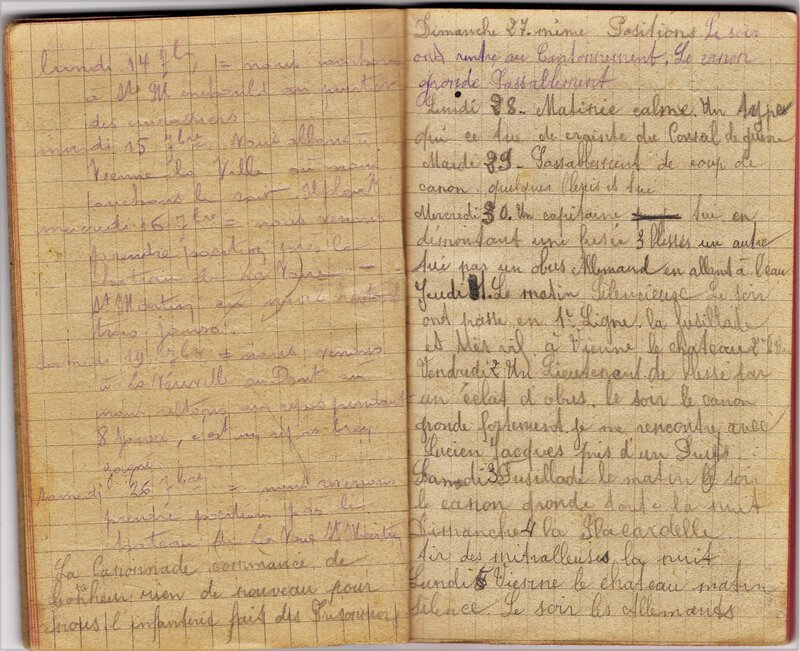 lundi 14 7bre = nous couchons
à St M
des cuirassiers.
mardi 15 7bre = Nous allons à
Vienne la Ville où nous
couchons le soir. Il pleut
mercredi 16 7bre = nous venons
prendre position près le
chateau de La
St Martin où nous restons
trois jours.
Samedi 19 7bre = nous venons
à La Neuville au Pont où
nous restons au repos pendant
8 jours, c'est un repos bien
gagné.
samedi 26 7bre = nous revenons
prendre position près le
chateau de La St Martin
La Canonnade commance de
bonheur rien de nouveau pour
nous l'infanterie fait des Prisonniers
Dimanche 27. même Positions. Le soir
ont rentre au Cantonnement. Le canon
gronde Passablement
Lundi 28 - Matinée calme. Un
qui ce tue de crainte du Conseil de guerre
Mardi 29 - Passablement de coup de
canon. quelques tue
Mercredi 30. Un capitaine tui en
démontant une fusée 3 blessés un autre
tué par un obus Allemand en allant à l'eau
Jeudi 1. Le matin Silencieuse Le soir
ont passe en 1re Ligne. la fusillade
et à Vienne le chateau
Vendredi 2 Un Lieutenant de blesse par
un éclat d'obus. le soir le canon
gronde fortement. je me rencontre avec
Lucien Jacques
Samedi 3 Fusillade le matin le soir
le canon gronde toute la nuit
Dimanche 4 la Placardelle
tir des mitralleuses la nuit
Lundi 5 Vienne le chateau matin
silence Le soir les Allemands